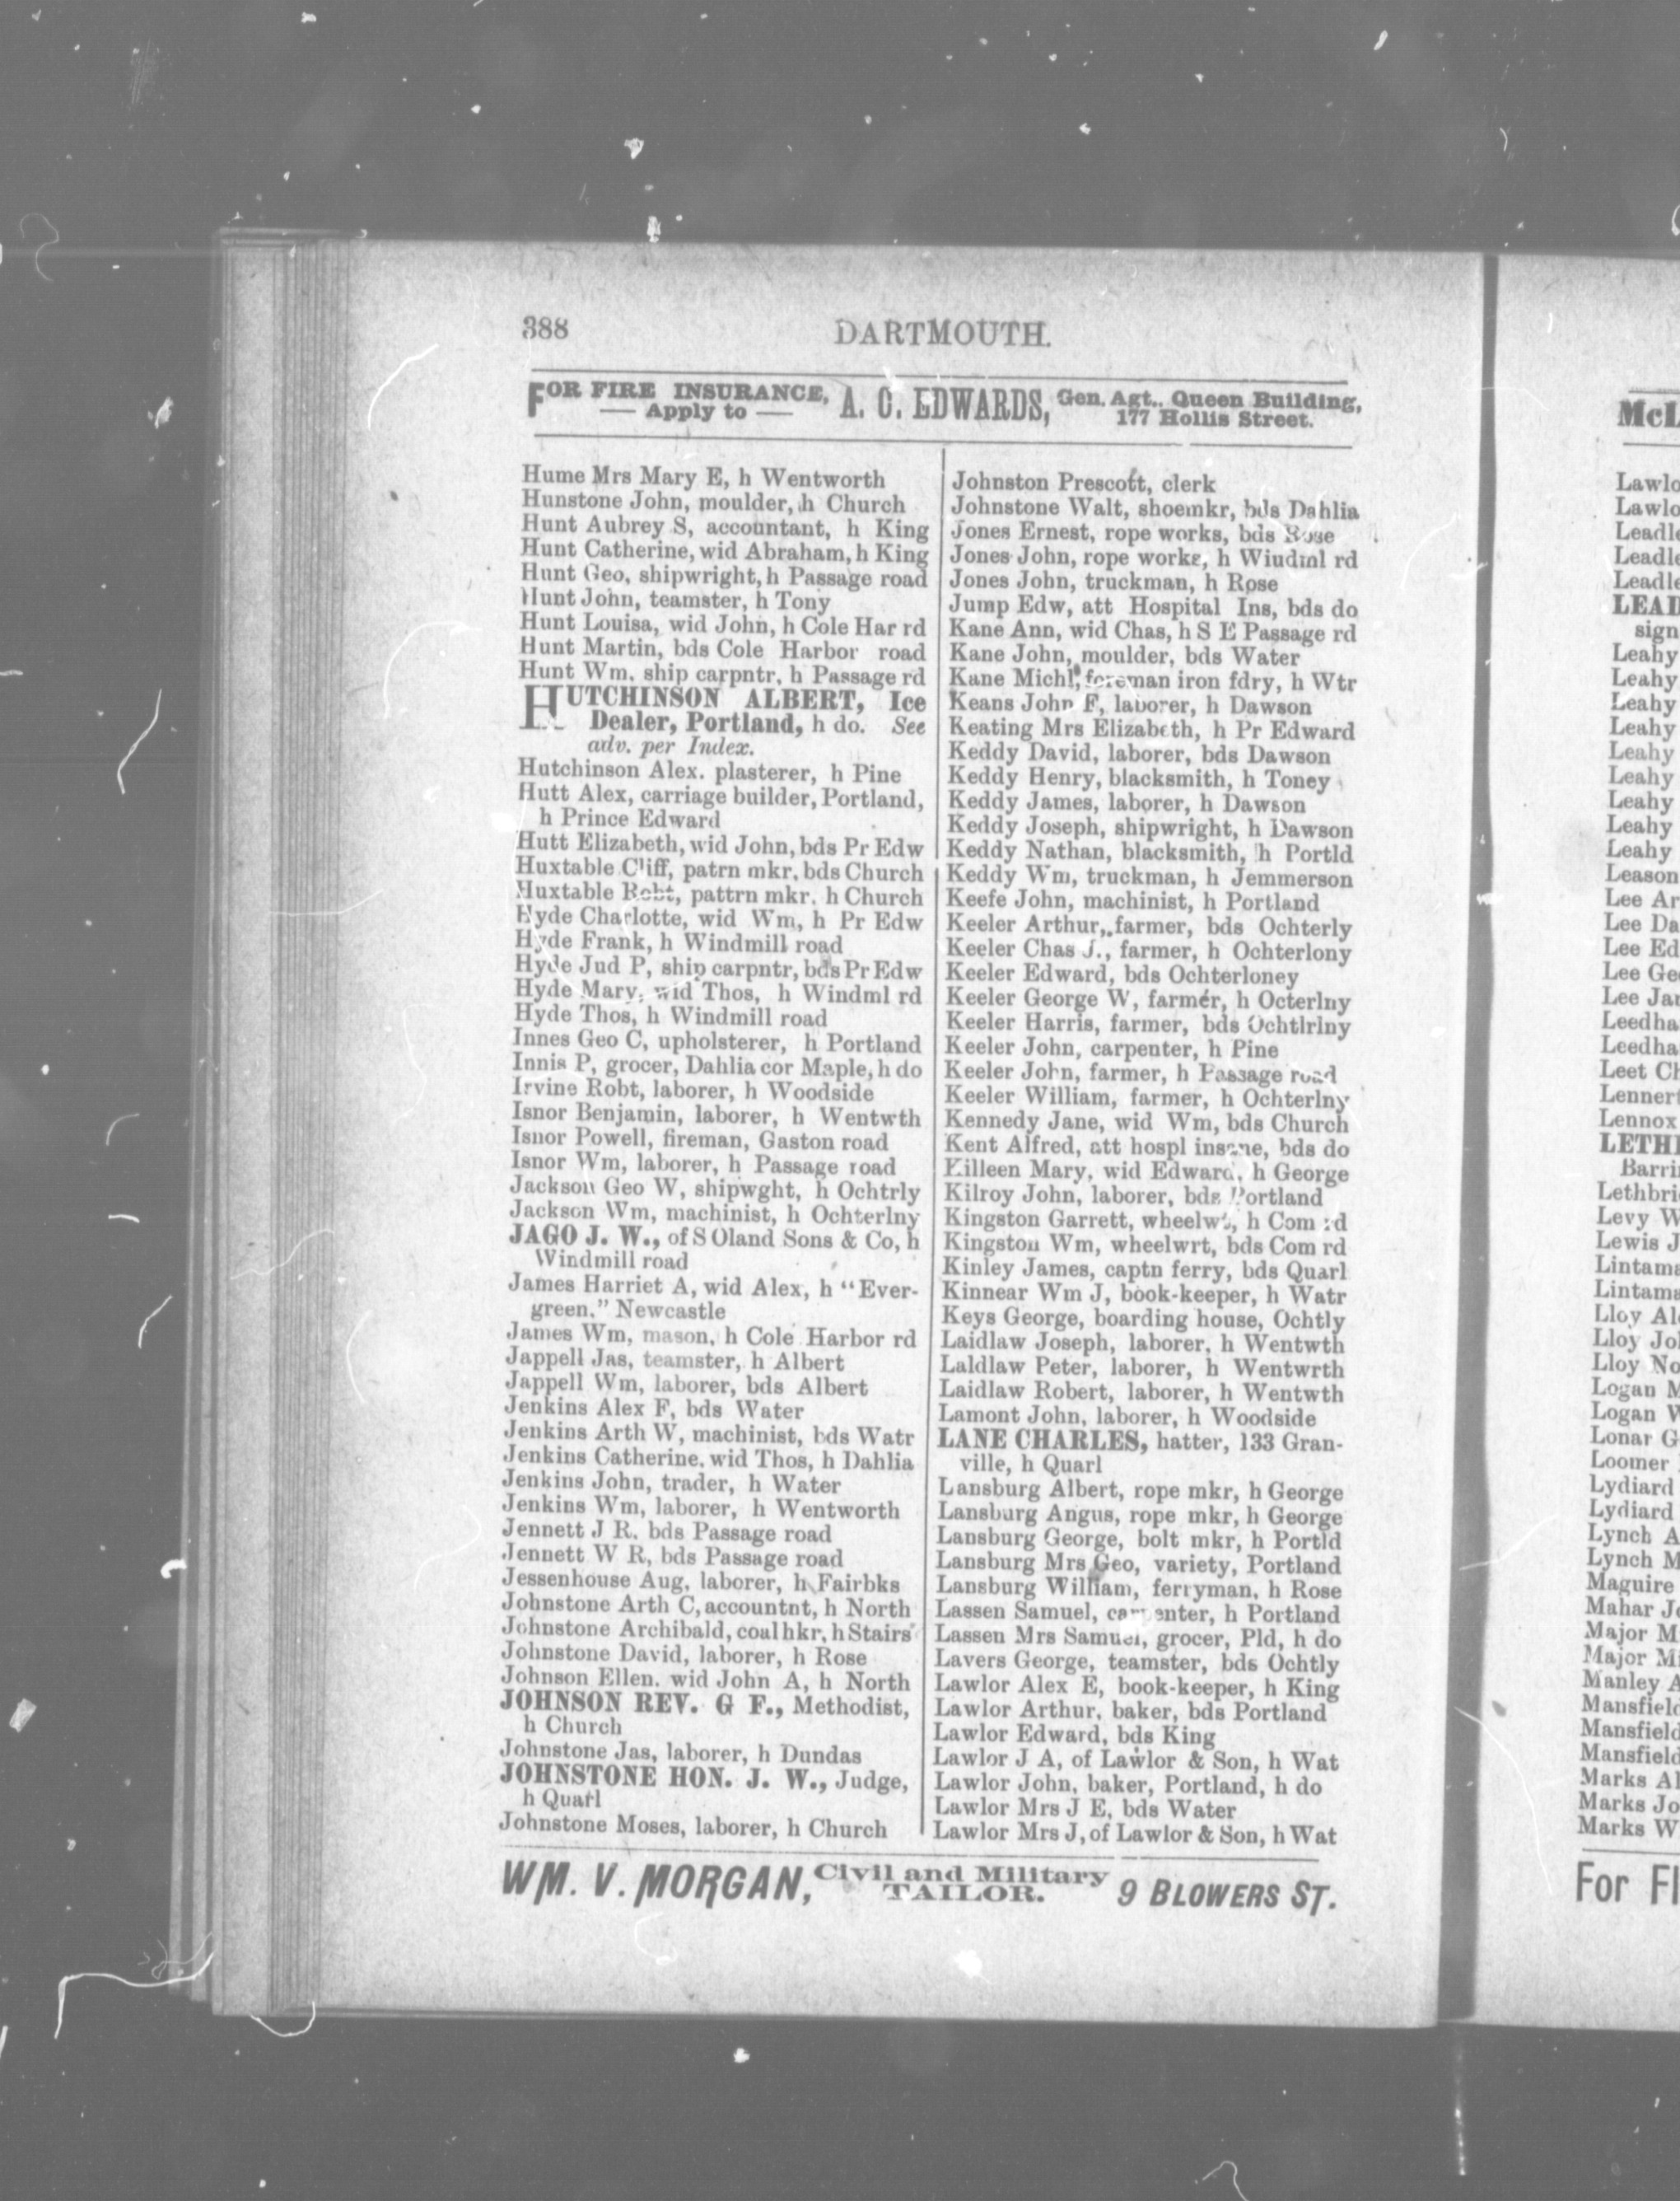 388
DARTMOUTH.
FOR FIRE INSURANCE, A. C. EDWARDS, Gen. Agt., Queen Building,
— Apply to — 177 Hollis Street.
Hume Mrs Mary E, h Wentworth
Hunstone John, moulder, h Church
Hunt Aubrey S, accountant, h King
Hunt Catherine, wid Abraham, h King
Hunt Geo, shipwright, h Passage road
Hunt John, teamster, h Tony
Hunt Louisa, wid John, h Cole Har rd
Hunt Martin, bds Cole Harbor road
Hunt Wm, ship carpntr, h Passage rd
HUTCHINSON ALBERT, Ice
Dealer, Portland, h do. See
adv. per Index.
Hutchinson Alex. plasterer, h Pine
Hutt Alex, carriage builder, Portland,
h Prince Edward
Hutt Elizabeth, wid John, bds Pr Edw
Huxtable Cliff, patrn mkr, bds Church
Huxtable Robt, pattrn mkr, h Church
Hyde Charlotte, wid Wm, h Pr Edw
Hyde Frank, h Windmill road
Hyde Jud P, ship carpntr, bds Pr Edw
Hyde Mary, wid Thos, h Windml rd
Hyde Thos, h Windmill road
Innes Geo C, upholsterer, h Portland
Innis P, grocer, Dahlia cor Maple, h do
Irvine Robt, laborer, h Woodside
Isnor Benjamin, laborer, h Wentwth
Isnor Powell, fireman, Gaston road
Isnor Wm, laborer, h Passage road
Jackson Geo W, shipwght, h Ochtrly
Jackson Wm, machinist, h Ochterlny
JAGO J. W., of S Oland Sons & Co, h
Windmill road
James Harriet A, wid Alex, h "Ever-
green," Newcastle
James Wm, mason, h Cole Harbor rd
Jappell Jas, teamster, h Albert
Jappell Wm, laborer, bds Albert
Jenkins Alex F, bds Water
Jenkins Arth W, machinist, bds Watr
Jenkins Catherine, wid Thos, h Dahlia
Jenkins John, trader, h Water
Jenkins Wm, laborer, h Wentworth
Jennett J R, bds Passage road
Jennett W R, bds Passage road
Jessenhouse Aug, laborer, h Fairbks
Johnstone Arth C, accountnt, h North
Johnstone Archibald, coalhkr, h Stairs
Johnstone David, laborer, h Rose
Johnson Ellen, wid John A, h North
JOHNSON REV. G F., Methodist,
h Church
Johnstone Jas, laborer, h Dundas
JOHNSTONE HON. J. W., Judge,
h Quarl
Johnstone Moses, laborer, h Church
Johnston Prescott, clerk
Johnstone Walt, shoemkr, bds Dahlia
Jones Ernest, rope works, bds Rose
Jones John, rope works, h Wiudml rd
Jones John, truckman, h Rose
Jump Edw, att Hospital Ins, bds do
Kane Ann, wid Chas, h S E Passage rd
Kane John, moulder, bds Water
Kane Michl, foreman iron fdry, h Wtr
Keans John F, laborer, h Dawson
Keating Mrs Elizabeth, h Pr Edward
Keddy David, laborer, bds Dawson
Keddy Henry, blacksmith, h Toney
Keddy James, laborer, h Dawson
Keddy Joseph, shipwright, h Dawson
Keddy Nathan, blacksmith, h Portld
Keddy Wm, truckman, h Jemmerson
Keefe John, machinist, h Portland
Keeler Arthur, farmer, bds Ochterly
Keeler Chas J., farmer, h Ochterlony
Keeler Edward, bds Ochterloney
Keeler George W, farmer, h Octerlny
Keeler Harris, farmer, bds Ochtlrlny
Keeler John, carpenter, h Pine
Keeler John, farmer, h Passage road
Keeler William, farmer, h Ochterlny
Kennedy Jane, wid Wm, bds Church
Kent Alfred, att hospl insane, bds do
Killeen Mary, wid Edward, h George
Kilroy John, laborer, bds Portland
Kingston Garrett, wheelwt, h Com rd
Kingston Wm, wheelwrt, bds Com rd
Kinley James, captn ferry, bds Quarl
Kinnear Wm J, book-keeper, h Watr
Keys George, boarding house, Ochtly
Laidlaw Joseph, laborer, h Wentwth
Laldlaw Peter, laborer, h Wentwrth
Laidlaw Robert, laborer, h Wentwth
Lamont John, laborer, h Woodside
LANE CHARLES, hatter, 133 Gran-
ville, h Quarl
Lansburg Albert, rope mkr, h George
Lansburg Angus, rope mkr, h George
Lansburg George, bolt mkr, h Portld
Lansburg Mrs Geo, variety, Portland
Lansburg William, ferryman, h Rose
Lassen Samuel, carpenter, h Portland
Lassen Mrs Samuel, grocer, Pld, h do
Lavers George, teamster, bds Ochtly
Lawlor Alex E, book-keeper, h King
Lawlor Arthur, baker, bds Portland
Lawlor Edward, bds King
Lawlor J A, of Lawlor & Son, h Wat
Lawlor John, baker, Portland, h do
Lawlor Mrs J E, bds Water
Lawlor Mrs J, of Lawlor & Son, h Wat
WM. V. MORGAN, Civil and Military TAILOR. 9 BLOWERS ST.
Leahy
Leahy
Leahy
Leahy
Leahy
Leahy
Leahy
Leahy
Leahy
Leason
Lee Ar
Lee Da
Lee Ed
Lee Jar
Leet Ch
Lennox
Levy W
Lewis J
Lloy No
Logan M
Logan W
Lonar G
Loomer
Lydiard
Lydiard
Lynch A
Lynch M
Maguire
Manley A
Marks Al
Marks Jo
Marks W
For Fl